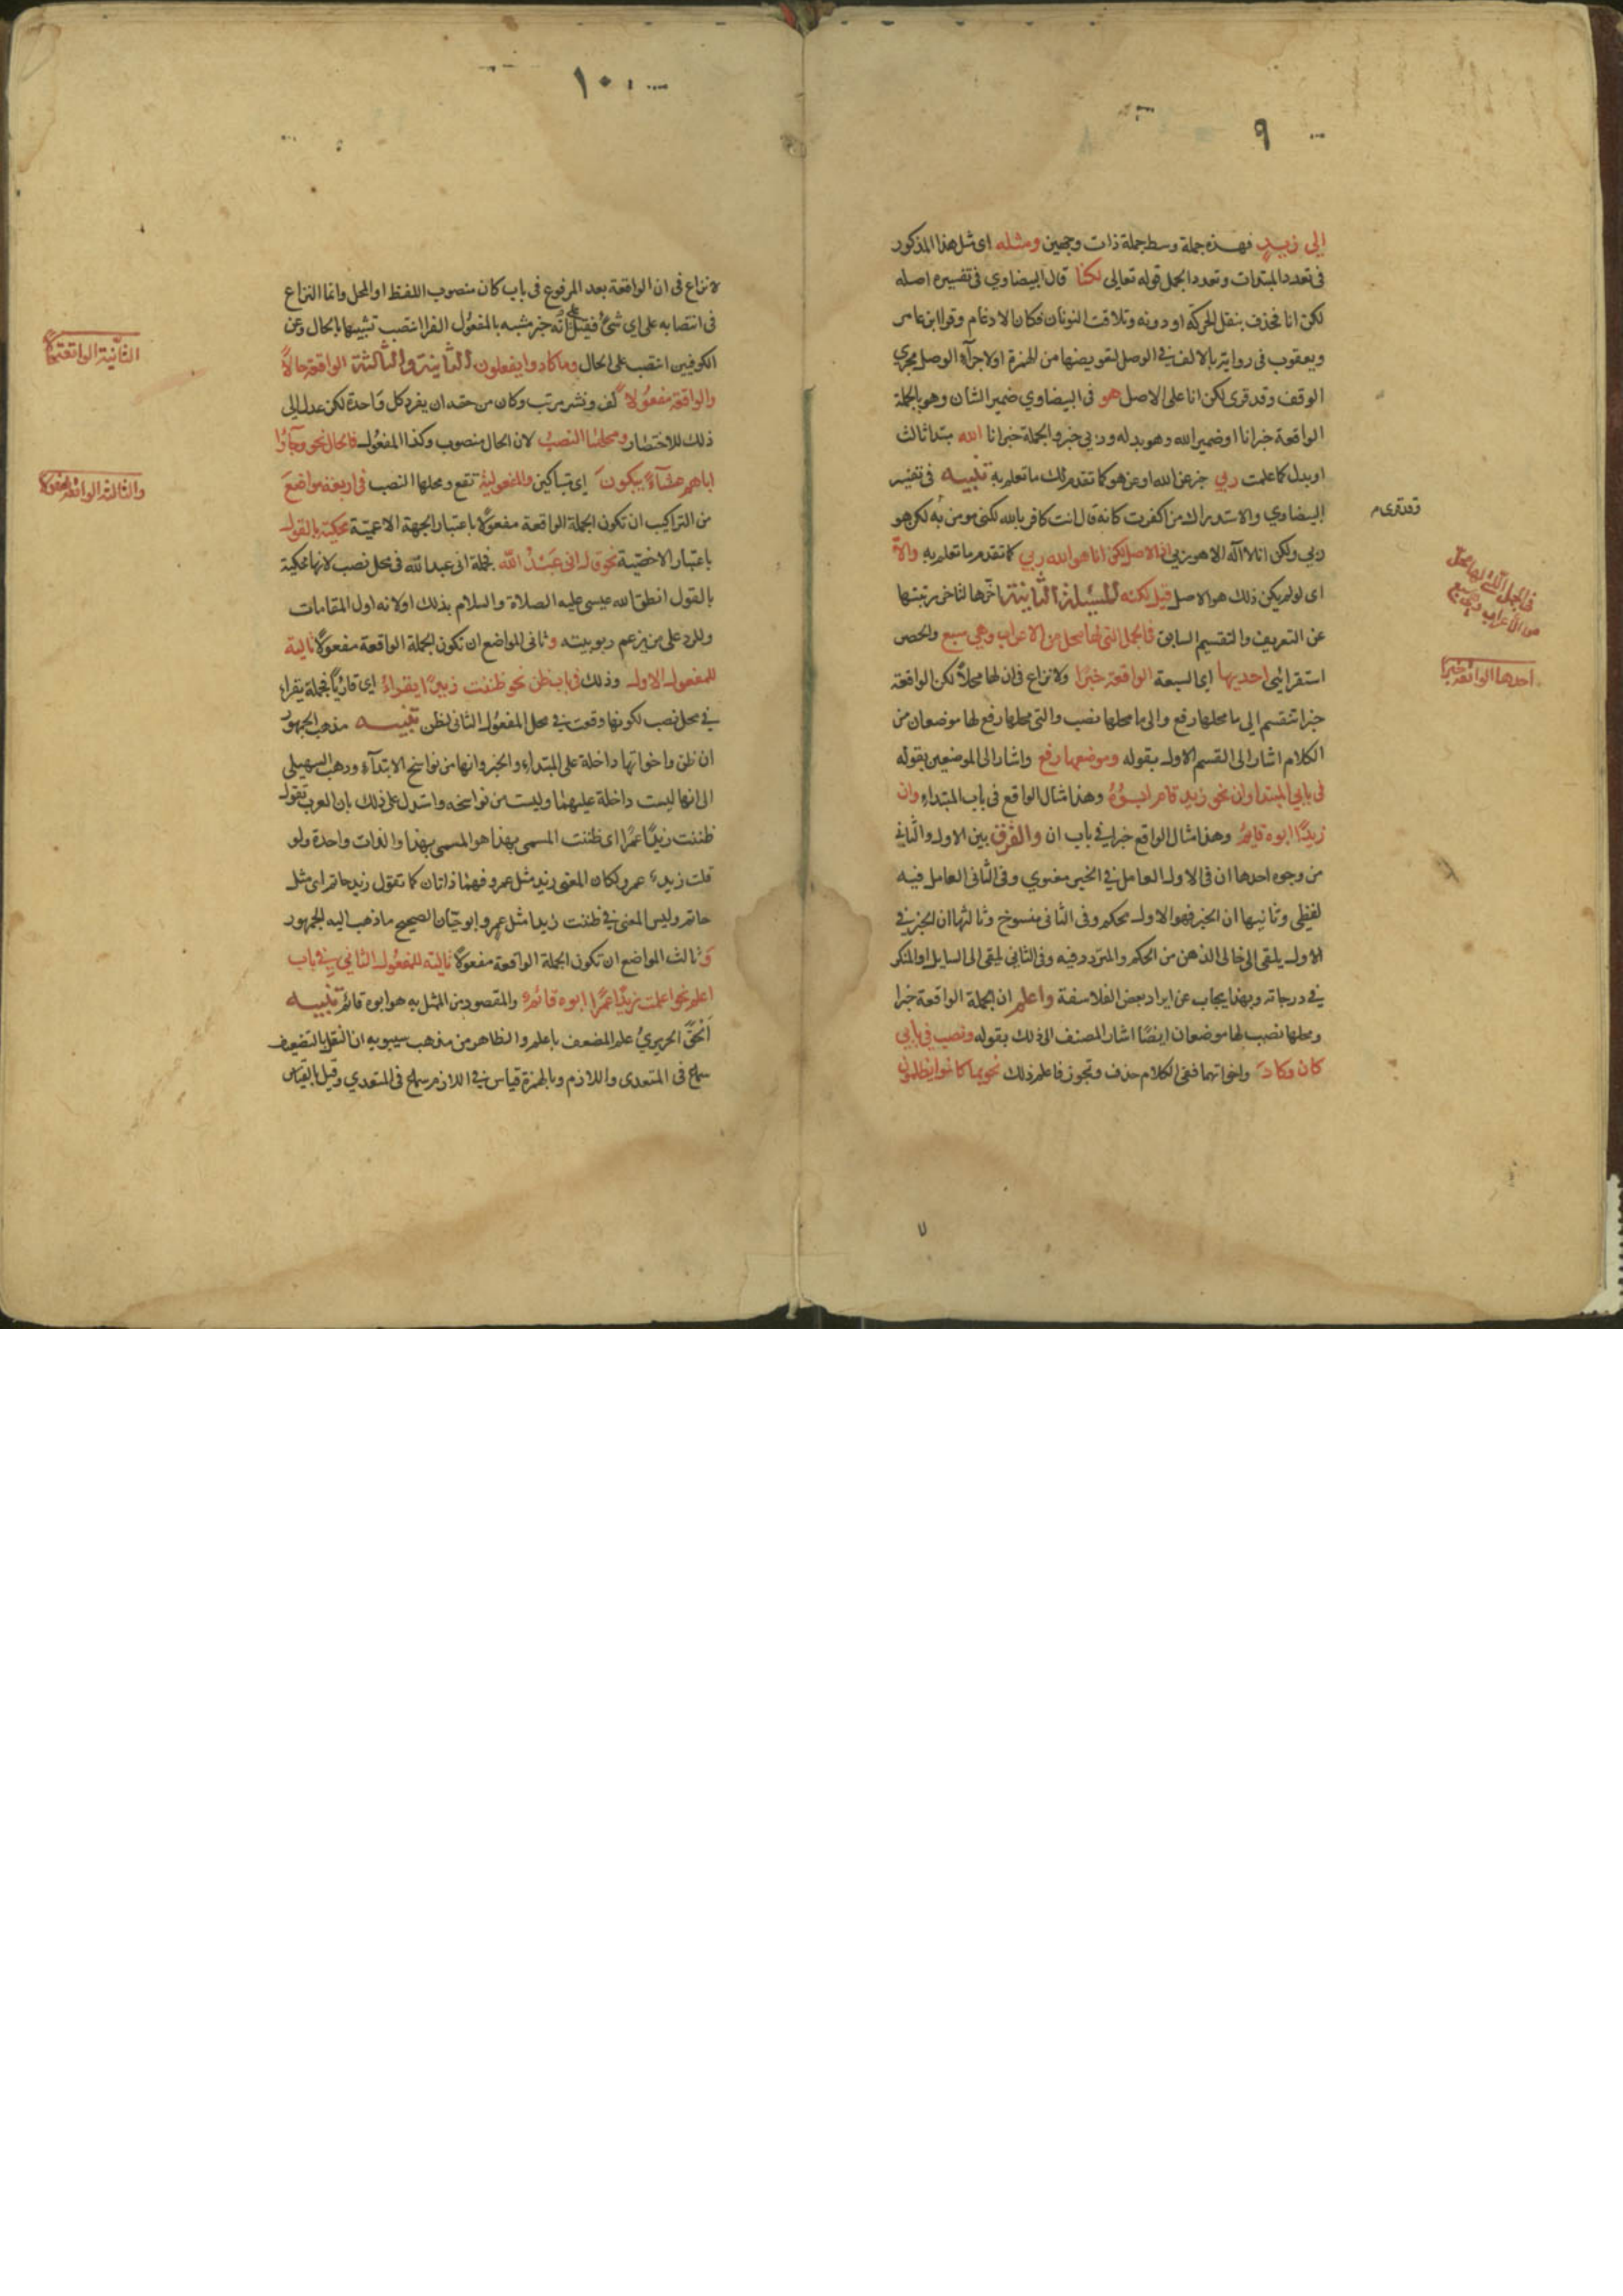 ٩
إلى زيد فهذه جملة وسط جملة ذات وجهين ومثله اى مثل هذا المذكور
فى تعدد المبتدات وتعدد الجمل قوله تعالى لكنا قال البيضاوي فى تفسيره اصله
لكن انا فحذف بنقل الحركة او دونه وتلاقت النونان فكان الادغام وقرا ابن عامر
ويعقوب فى رواية بالالف في الوصل لتعويضها من الهمزة او لاجراء الوصل مجري
الوقف وقد قرى لكن انا على الاصل هو فى البيضاوي ضمير الشان وهو بالجملة
الواقعة خبر انا او ضمير الله وهو بدله وربي خبر والجملة خبر انا الله مبتدا ثالث
او بدل كما علمت ربي خبر عن الله او عن هو كما تقدم لك ما تعلم به تنبيه فى تفسير
البيضاوي والاستدراك من اكفرت كانه قال انت كافر بالله لكنى مومن به لكن هو
ربي ولكن انا لا اله الا هو ربي اذ الاصل لكن انا هو الله ربي كما تقدم ما تعلم به والا
اى لو لم يكن ذلك هو الاصل قيل لكنه المسئلة الثانية اخرها لتاخر رتبتها
عن التعريف والتقسيم السابق فى الجمل التى لها محل من الاعراب وهي سبع والحصر
استقرائى احديها اى السبعة الواقعة خبرًا ولا نزاع فى ان لها محلاً لكن الواقعة
خبرا تنقسم الى ما محلها رفع والى ما محلها نصب والتى محلها رفع لها موضعان من
الكلام اشار الى القسم الاول بقوله وموضعها رفع واشار الى الموضعين بقوله
فى بابي المبتدا وان نحو زيد قام ابوه وهذا مثال الواقع فى باب المبتداء وان
زيدًا ابوه قايم وهذا مثال الواقع خبرا في باب ان والفرق بين الاول والثاني
من وجوه احدها ان فى الاول العامل في الخبر معنوي وفى الثانى العامل فيه
لفظى وثانيها ان الخبر فهو الاول محكم وفى الثانى منسوخ وثالثها ان الخبر في
الاول يلقى الى خالى الذهن من الحكم والمتردد فيه وفى الثانى يلقى الى السايل او المنكر
في درجاته وبهذا يجاب عن ايراد بعض الفلاسفة واعلم ان الجملة الواقعة خبرا
ومحلها نصب لها موضعان ايضًا اشار المصنف الى ذلك بقوله ونصب فى بابي
كان وكاد واخواتهما ففى الكلام حذف وتجوز فاعلم ذلك نحو بما كانوا يظلمون
وقد قرى م
فى الجمل التى لها محل
من الاعراب وهي سبع
احدها الواقعة خبرا
١٠
لا نزاع فى ان الواقعة بعد المرفوع فى باب كان منصوب اللفظ او المحل وانما النزاع
فى انتصابه على اى شئ فقيل على انه خبر مشبه بالمفعول الفرا انتصب تشبيها بالحال وعن
الكوفيين انتصب على الحال وما كادوا يفعلون الثانية والثالثة الواقعة حالاً
والواقعة مفعولا لف ونشر مرتب وكان من حقه ان يفرد كل واحدة لكن عدل الى
ذلك للاختصار ومحلهما النصب لان الحال منصوب وكذا المفعول فالحال نحو وجاؤا
اباهم عشاءً يبكون اى متباكين والمفعولية تقع ومحلها النصب فى اربعة مواضع
من التراكيب ان تكون الجملة الواقعة مفعولا باعتبار الجهة الاعمية محكية بالقول
باعتبار الاخصية نحو قال انى عبد الله فجملة انى عبد الله فى محل نصب لانها محكية
بالقول انطق الله عيسى عليه الصلاة والسلام بذلك اولا لانه اول المقامات
وللرد على من يزعم ربوبيته وثانى المواضع ان تكون الجملة الواقعة مفعولاً تالية
للمفعول الاول وذلك فى باب ظن نحو ظننت زيدًا يقراء اى قارياً فجملة يقراء
في محل نصب لكونها وقعت في محل المفعول الثانى لظن تنبيه مذهب الجمهور
ان ظن واخواتها داخلة على المبتداء والخبر وانها من نواسخ الابتداء وذهب السهيلى
الى انها ليست داخلة عليهما وليست من نواسخه واستدل على ذلك بان العرب تقول
ظننت زيدًا عمرًا اى ظننت المسمى بهذا هو المسمى بهذا والذات واحدة ولو
قلت زيد عمرو لكان المعنى زيد مثل عمرو فهما ذاتان كما تقول زيد حاتم اى مثل
حاتم وليس المعنى في ظننت زيدا مثل عمرو ابو حيان الصحيح ما ذهب اليه الجمهور
وثالث المواضع ان تكون الجملة الواقعة مفعولاً تالية للمفعول الثاني في باب
اعلم نحو اعلمت زيدًا عمرًا ابوه قائم والمقصود من المثل به هو ابوه قائم تنبيه
الحق الحريري علم المضعف باعلم والظاهر من مذهب سيبويه ان النقل بالتضعيف
سماع فى المتعدى واللازم وبالهمزة قياس في اللازم سماع فى المتعدي وقيل بالقياس
الثانية الواقعة حالا
والثالثة الواقعة مفعولا